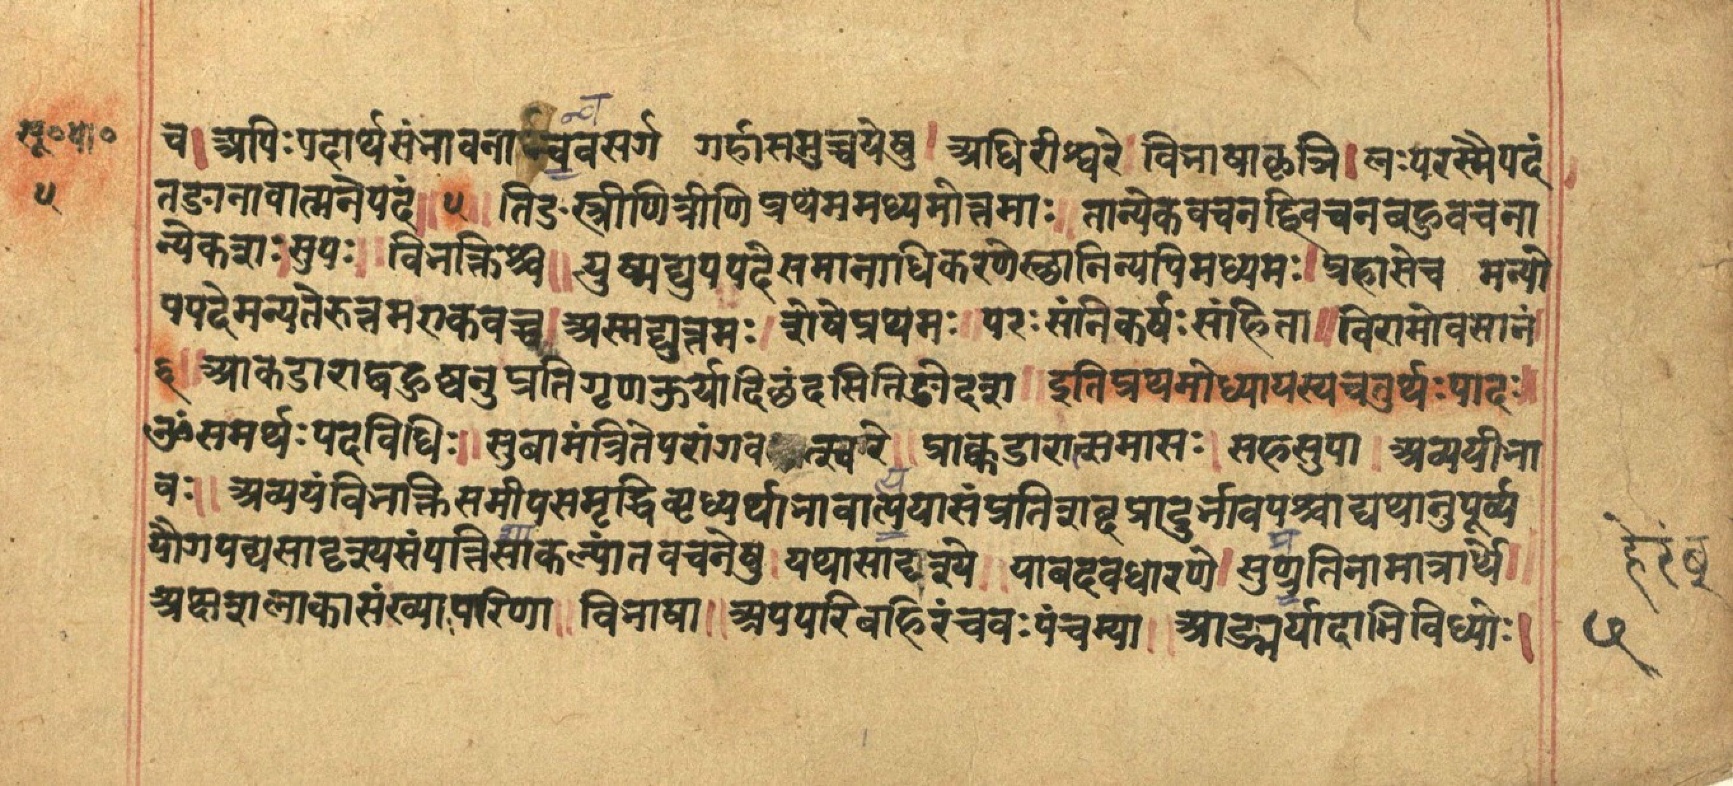 सू०पा०
५
च। अपिः पदार्थसंभावनान्ववसर्ग गर्हासमुच्चयेषु। अधिरीश्वरे। विभाषाकृञि। लः परस्मैपदं
तङानावात्मनेपदं॥ ५॥ तिङस्त्रीणित्रीणि प्रथममध्यमोत्तमाः॥ तान्येकवचनद्विवचनबहुवचना
न्येकशः। सुपः॥ विभक्तिश्च॥ युष्मद्युपपदेसमानाधिकरणेस्थानिन्यपिमध्यमः। प्रहासेच मन्यो
पपदेमन्यतेरुत्तमएकवच्च। अस्मद्युत्तमः। शेषेप्रथमः॥ परः संनिकर्षः संहिता॥ विरामोवसानं
६॥ आकडाराद्बहुष्वनुप्रतिगृणऊर्यादिछंदसितिङोदश॥ इतिप्रथमोध्यायस्यचतुर्थः पादः॥
ॐसमर्थः पदविधिः॥ सुबामंत्रितेपरांगवत्स्वरे॥ प्राक्कडारात्समासः। सहसुपा। अव्ययीभा
वः॥ अव्ययंविभक्तिसमीपसमृद्धिव्यृध्यर्थाभावात्ययासंप्रतिशब्दप्रादुर्भावपश्चाद्यथानुपूर्व्य
यौगपद्यसादृश्यसंपत्तिसाकल्यांतवचनेषु। यथासादृश्ये॥ यावदवधारणे। सुप्प्रतिनामात्रार्थे॥
अक्षशलाकासंख्याः परिणा॥ विभाषा॥ अपपरिबहिरंचवः पंचम्या॥ आङ्मर्यादाभिविध्योः।
हेरंब
५